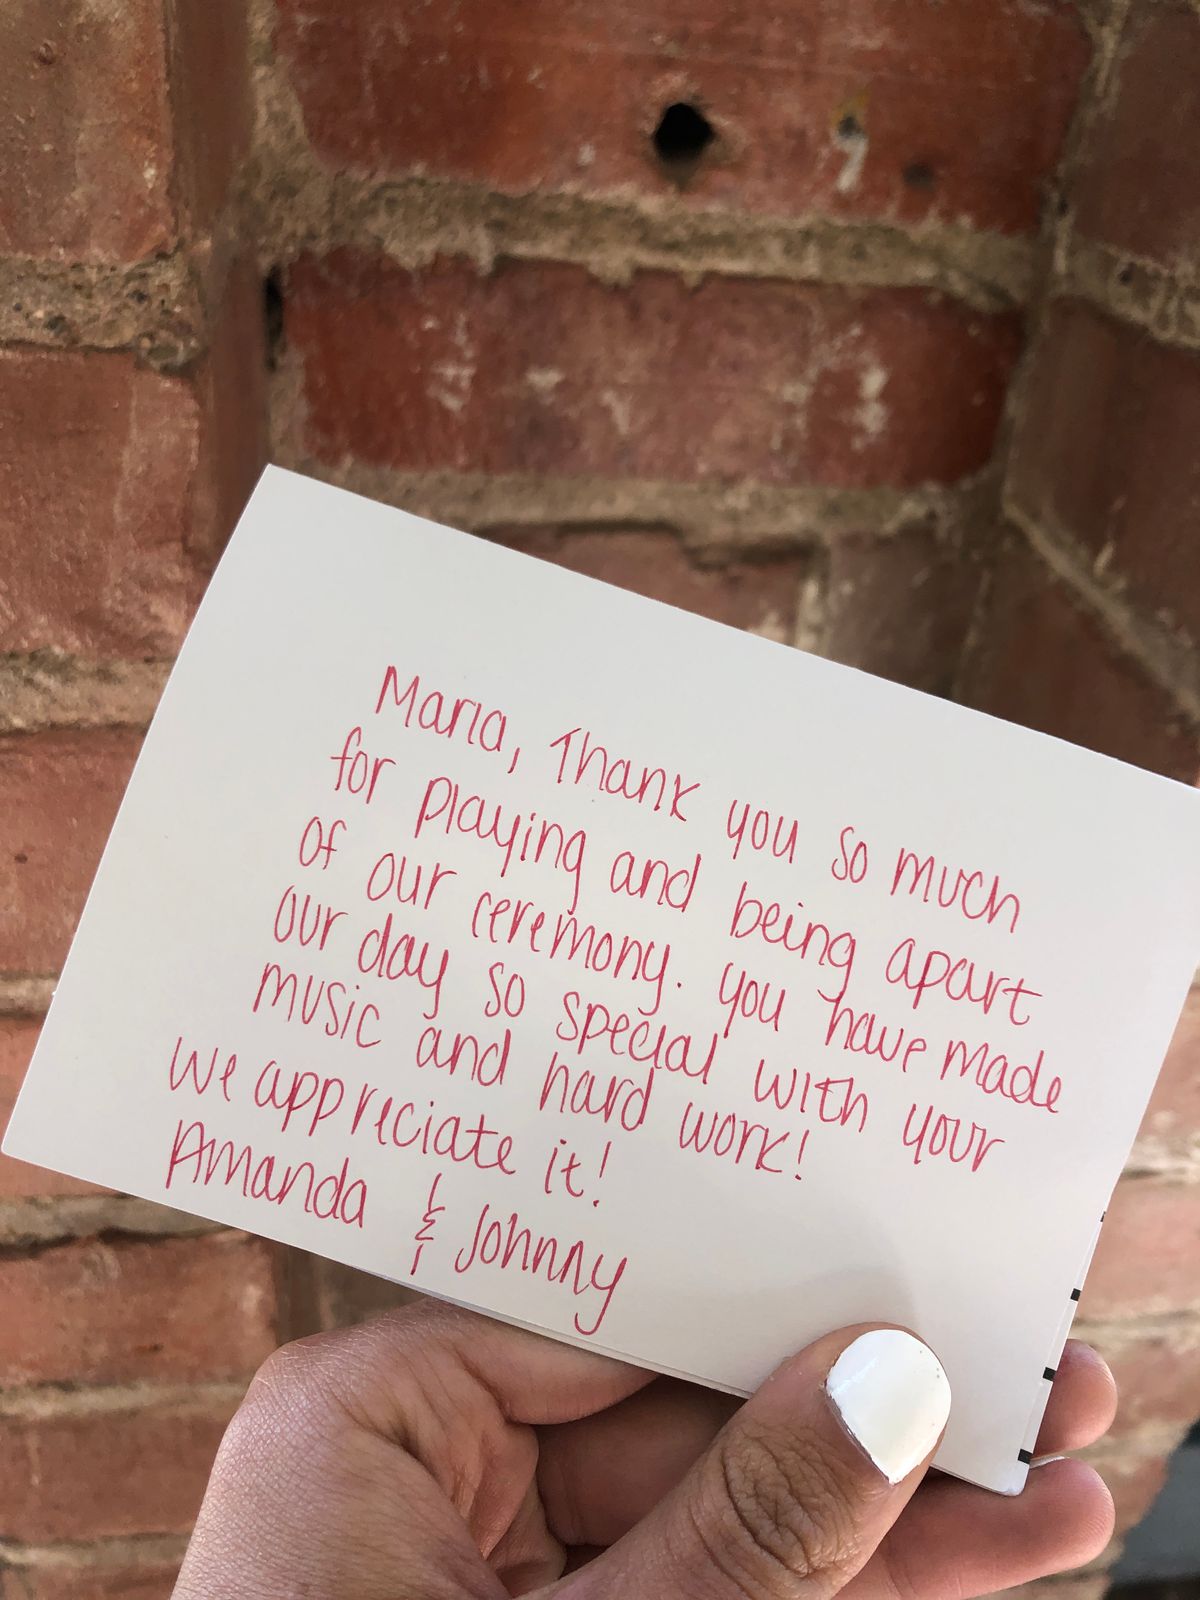 Maria, Thank you so much
for playing and being apart
of our ceremony. you have made
our day so special with your
music and hard work!
We appreciate it!
Amanda & Johnny